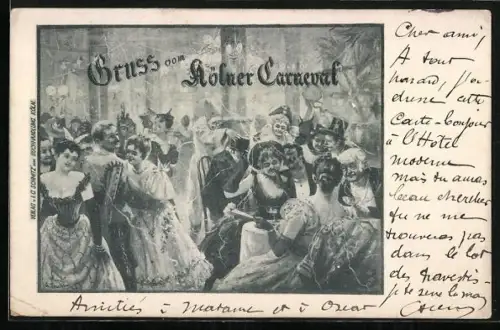 Gruss vom
Kölner Carneval
VERLAG v. J.G. SCHMITZ'sche BUCHHANDLUNG KÖLN.
Cher ami,
A tout
hasard, j'a-
dresse cette
Carte-bonjour
à l'Hôtel
moderne
mais tu auras
beau chercher
tu ne me
trouveras pas
dans le lot
des travestis -
je te serre la main
Amitiés à Madame et à Oscar